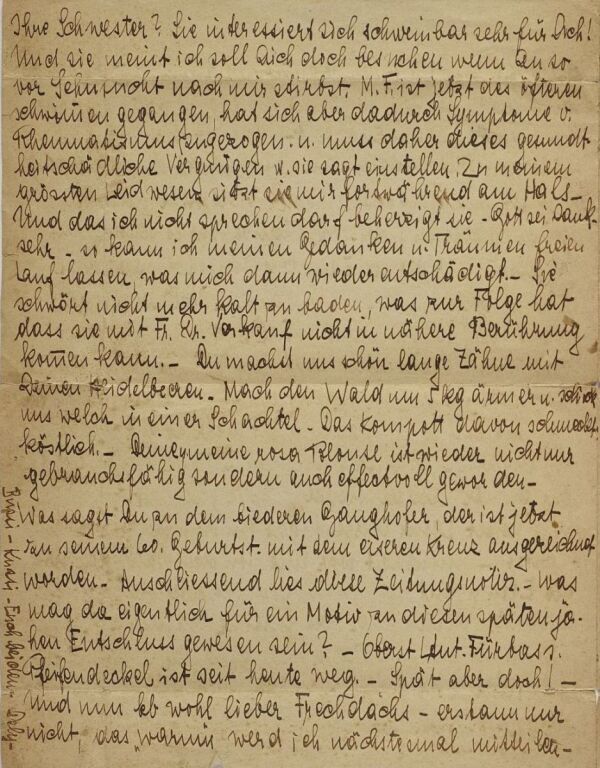 Ihre Schwester? Sie interessiert sich scheinbar sehr für Dich!
Und sie meint ich soll Dich doch besuchen wenn Du so
vor Sehnsucht nach mir stirbst. M. F. ist jetzt des öfteren
schwimmen gegangen, hat sich aber dadurch Symptome v.
Rheumatismus zugezogen u. muss daher dieses gesundt
heitschädliche Vergnügen w. sie sagt einstellen. Zu meinem
grössten Leidwesen sitzt sie mir fortwährend am Hals –
Und das ich nicht sprechen darf beherzigt sie – Gott sei Dank –
sehr – so kann ich meinen Gedanken u. Träumen freien
Lauf lassen, was mich dann wieder entschädigt. – Sie
schwört nicht mehr kalt zu baden, was zur Folge hat
dass sie mit Fr. Dr. Verkauf nicht in nähere Berührung
kommen kann. – Du machst uns schön lange Zähne mit
Deinen Heidelbeeren – Mach den Wald um 5 kg ärmer u. schicke
uns welch in einer Schachtel – Das Kompott davon schmeckt
köstlich. – Deine/meine rosa Blouse ist wieder nicht nur
gebrauchsfähig sondern auch effectvoll geworden –
Was sagst Du zu dem biederen Ganghofer, der ist jetzt
zu seinem 60. Geburtst. mit dem eiseren Kreuz ausgezeichnet
worden – Anschliessend lies Zeitungsnotiz. – was
mag da eigentlich für ein Motiv zu diesen späten jä-
hen Entschluss gewesen sein? – Oberst Lnt. Fürbass s.
Pfeifendeckel ist seit heute weg. – Spät aber doch! –
Und nun leb wohl lieber Frechdachs – erstaun nur
nicht, das "warum" werd ich nächstemal mitteilen –